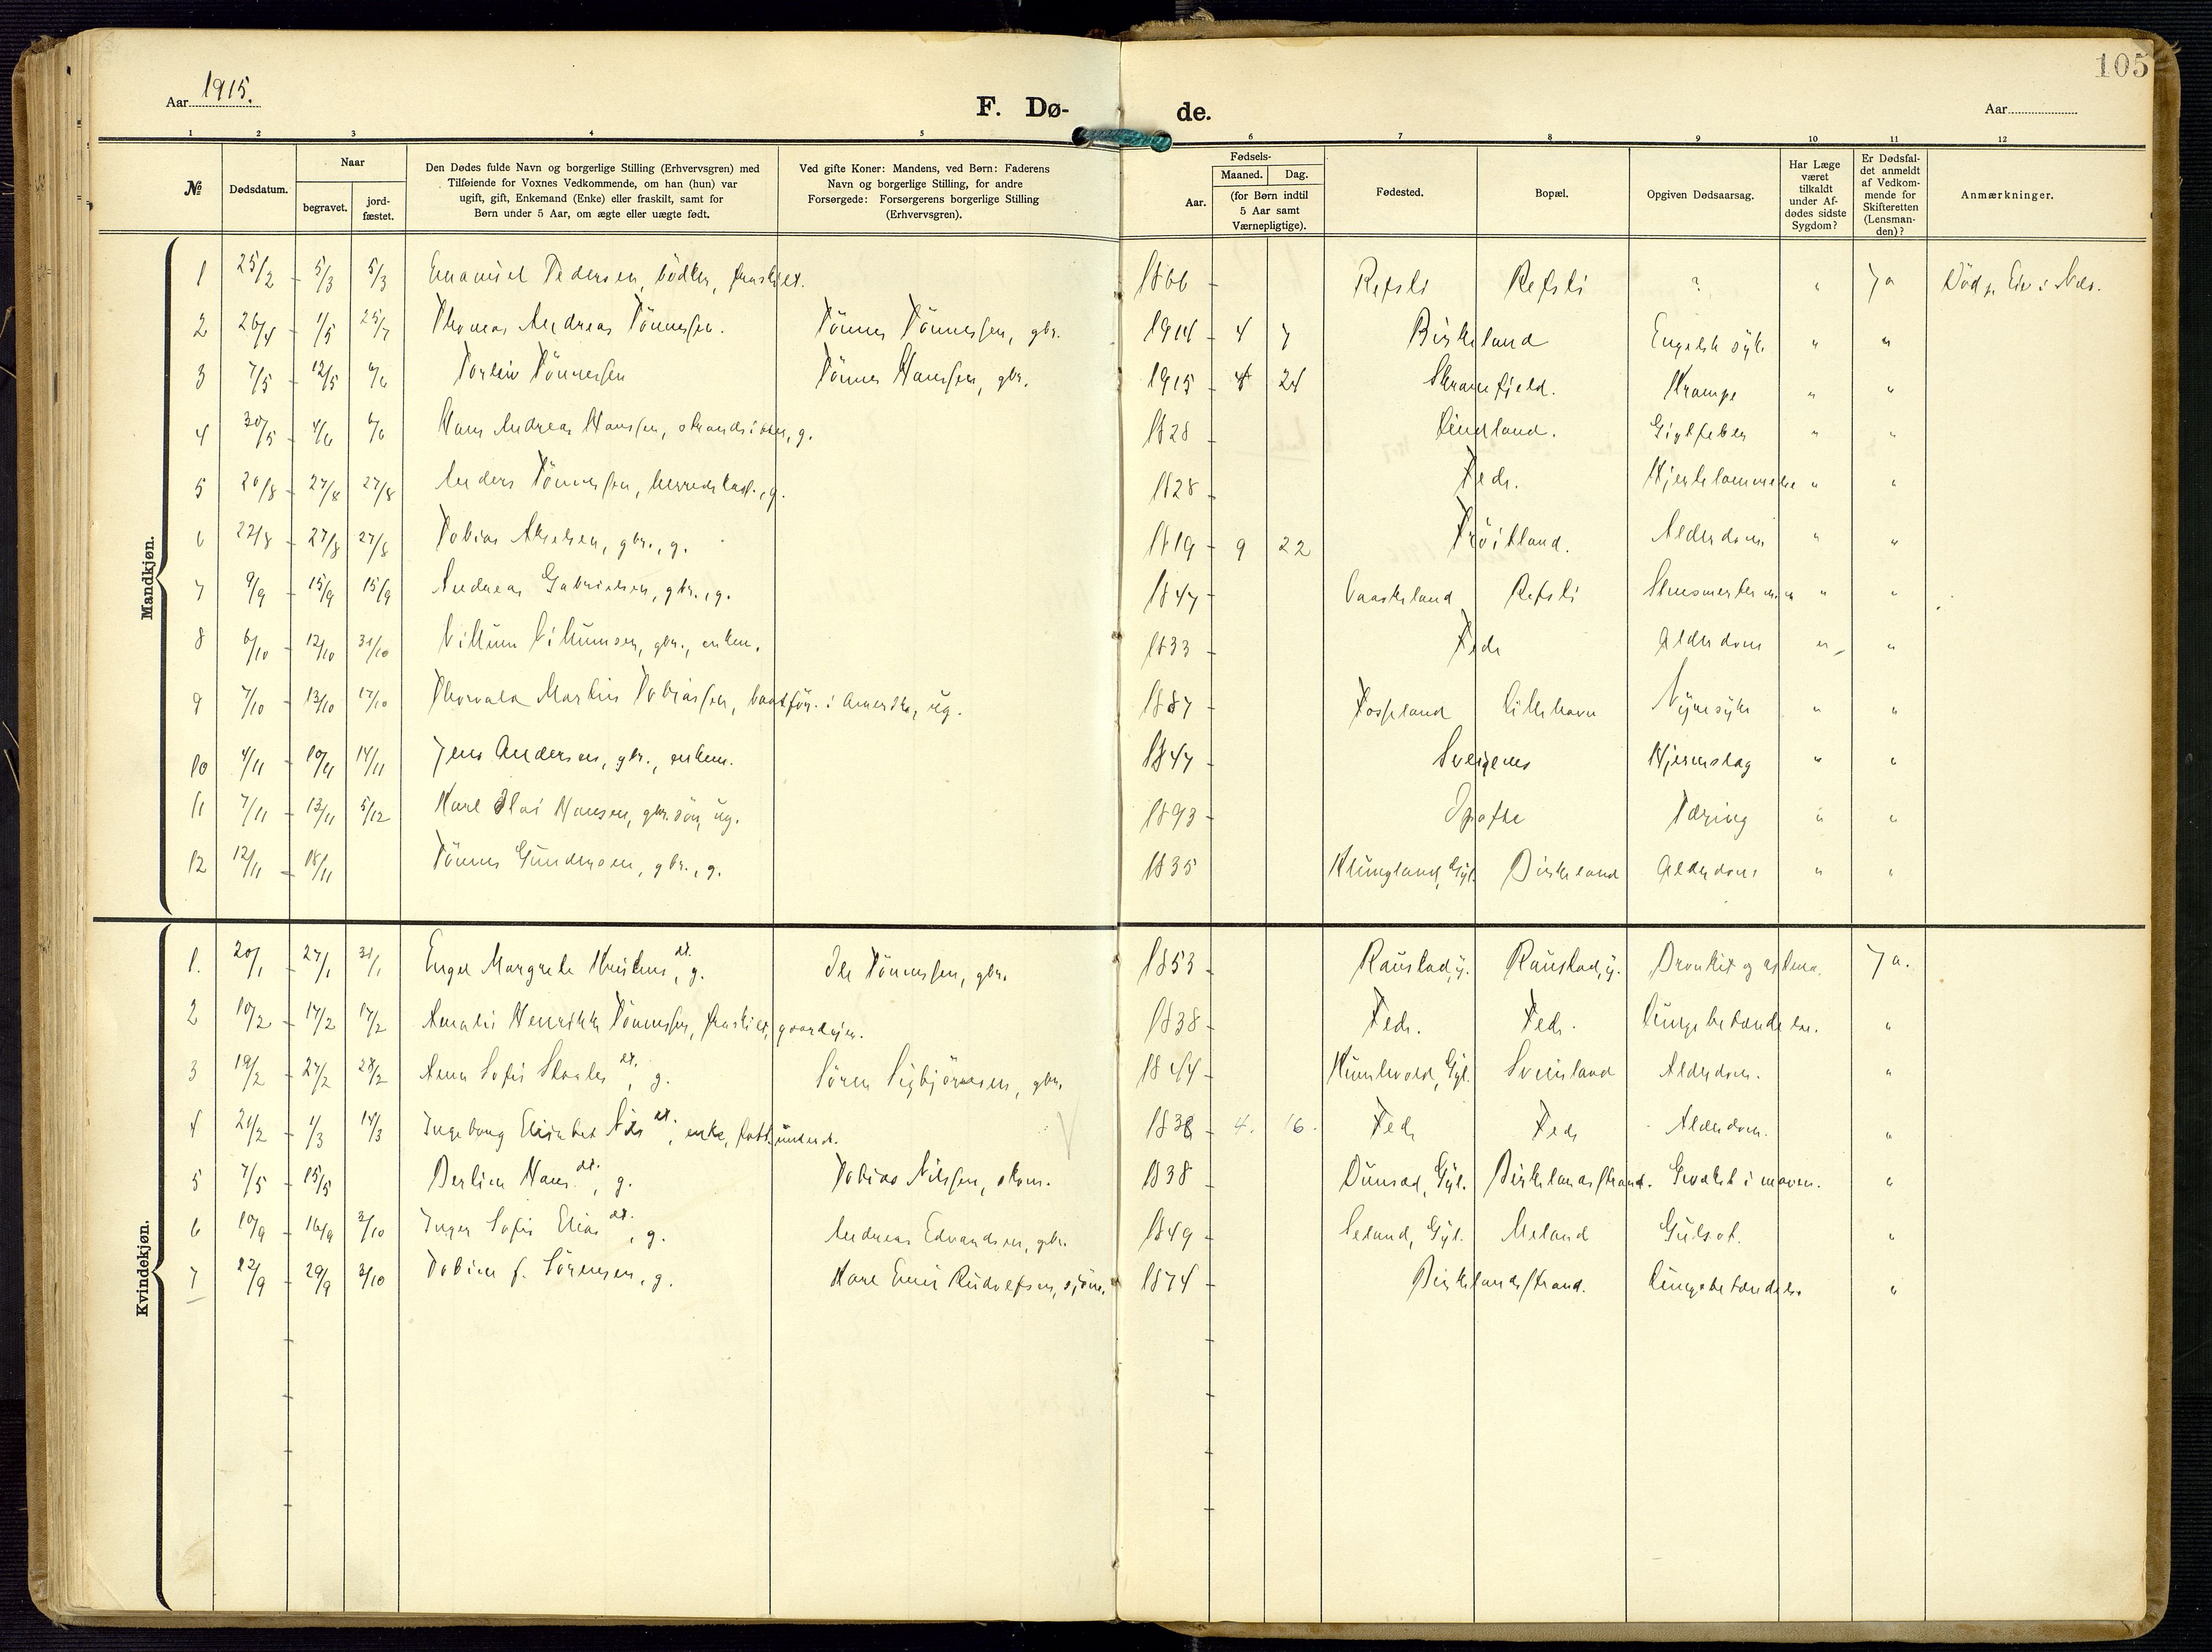 105
Aar 1915.
F. Dø-
de.
Aar
1 2 3 4 5 6 7 8 9 10 11 12
№
Dødsdatum.
Naar
begravet.
jord-
fæstet.
Den Dødes fulde Navn og borgerlige Stilling (Erhvervsgren) med
Tilføiende for Voxnes Vedkommende, om han (hun) var
ugift, gift, Enkemand (Enke) eller fraskilt, samt for
Børn under 5 Aar, om ægte eller uægte født.
Ved gifte Koner: Mandens, ved Børn: Faderens
Navn og borgerlige Stilling, for andre
Forsørgede: Forsørgerens borgerlige Stilling
(Erhvervsgren).
Fødsels-
Aar.
Maaned.
Dag.
(for Børn indtil
5 Aar samt
Værnepligtige).
Fødested.
Bopæl.
Opgiven Dødsaarsag.
Har Læge
været
tilkaldt
under Af-
dødes sidste
Sygdom?
Er Dødsfal-
det anmeldt
af Vedkom-
mende for
Skifteretten
(Lensman-
den)?
Anmærkninger.
Mandkjøn.
1 25/2 5/3 5/3 Emanuel Pedersen, bödker, fraskilt. 1866 Refsti Refsti ? " Ja
2 26/4 1/5 25/7 Thomas Andreas Tönnessen. Tönnes Tönnessen, gbr. 1914 4 7 Birkeland Engelsk syke " "
3 7/5 12/5 6/6 Torleiv Tönnessen Tönnes Hanssen, gbr. 1915 4 24 Skranefjeld. Krampe " "
4 30/5 4/6 6/6 Hans Andreas Hanssen, strandsitter, g. 1828 Lindland. Gigtfeber " "
5 20/8 27/8 27/8 Anders Tönnessen, herredskas., g. 1828 Fede. Hjertelammelse " "
6 22/8 27/8 27/8 Tobias Akselsen, gbr., g. 1819 9 22 Tröitland. Alderdom " "
7 9/9 15/9 15/9 Andreas Gabrielsen, gbr., g. 1847 Vaaskeland Refsti " "
8 6/10 12/10 31/10 Villum Villumsen, gbr., enkem. 1833 Fede Alderdom " "
9 7/10 13/10 17/10 Thorvald Martin Tobiassen, baatför. i Amerika, ug. 1887 Fosseland Lillehavn Nyresyke " "
10 4/11 10/11 14/11 Jens Andersen, gbr., enkem. 1847 Sveigenes Hjerneslag " "
11 7/11 13/11 5/12 Karl Olai Hansen, gbr. sön, ug. 1893 Opofte Tæring " "
12 12/11 18/11 Tönnes Gundersen, gbr., g. 1835 Klungland, Gyl. Birkeland Alderdom " "
Kvindekjøn.
1. 20/1 27/1 31/1 Enger Margrete Kristens dt., g. Ole Tönnessen, gbr. 1853 Raustad, y. Raustad, y. Bronkit og astma. Ja.
2 10/2 17/2 17/2 Amalie Henrikke Tönnessen, fraskilt, gaardejer. 1838 Fede. Fede. Lungebetændelse. "
3 19/2 27/2 28/2 Anna Sofie Staales dt., g. Sören Sigbjörnsen, gbr. 1844 Kumlevold, Gyl. Sveinland Alderdom. "
4 21/2 1/3 14/3 Ingeborg Elisabet Nils dt., enke, fatt. underst. 1838 4. 16. Fede Fede Alderdom. "
5 7/5 15/5 Berlina Hans dt., g. Tobias Nilssen, skom. 1838 Dunsæd, Gyl. Birkelandsstrand. Gevækst i maven. "
6 10/9 16/9 3/10 Inger Sofie Elias dt., g. Andreas Edvardsen, gbr. 1849 Seland, Gyl. Meland Gulsot. "
7 22/9 29/9 3/10 Tobine f. Sörensen, g. Karl Emil Rudolfsen, sjöm. 1874 Birkelandsstrand. Lungebetændelse "